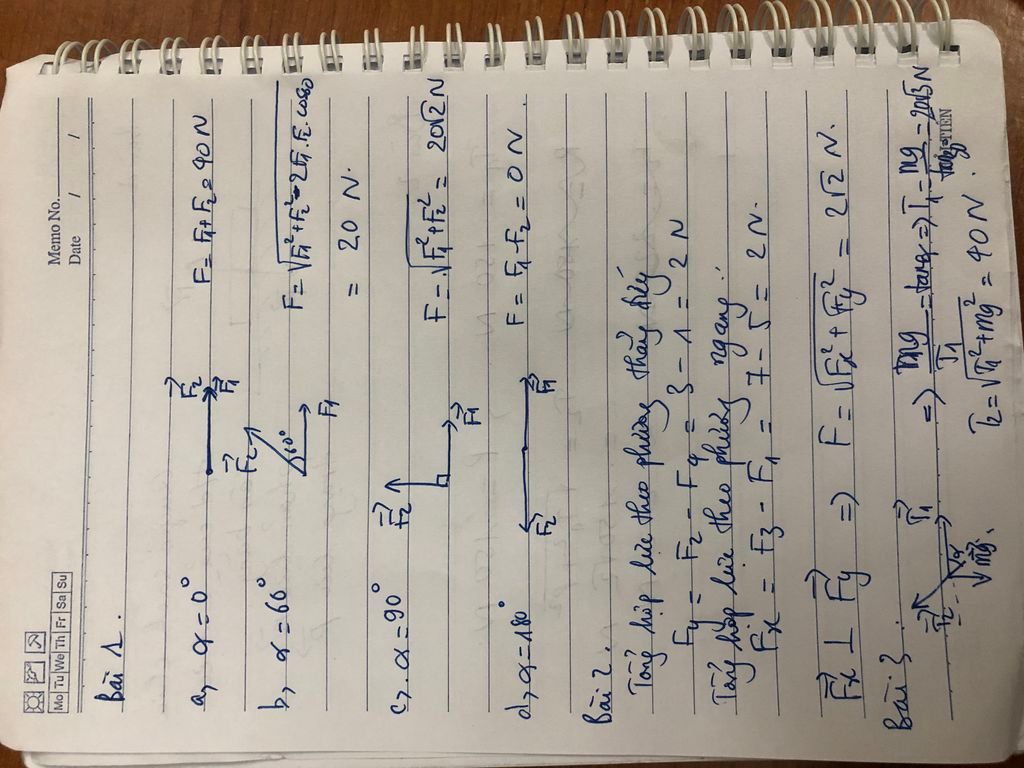 Memo No.
Date / /
Mo Tu We Th Fr Sa Su
Bài 1.
a, α = 0°
F₂
F₁
F = F₁ + F₂ = 40 N
b, α = 60°
F₂
60°
F₁
F = √F₁² + F₂² - 2F₁.F₂.cosα
= 20 N.
c, α = 90°
F₂
F₁
F = √F₁² + F₂² = 20√2 N
d, α = 180°
F₂
F₁
F = F₁ - F₂ = 0 N
Bài 2.
Tổng hợp lực theo phương thẳng đứng
Fy = F₂ - F₄ = 3 - 1 = 2 N
Tổng hợp lực theo phương ngang:
Fx = F₃ - F₁ = 7 - 5 = 2 N.
Fx ⊥ Fy => F = √Fx² + Fy² = 2√2 N.
Bài 3.
T₂
T₁
α
mg
=> mg/T₁ = tanα => T₁ = mg/tanα = 20√3 N
T₂ = √T₁² + mg² = 40 N.
TIEN